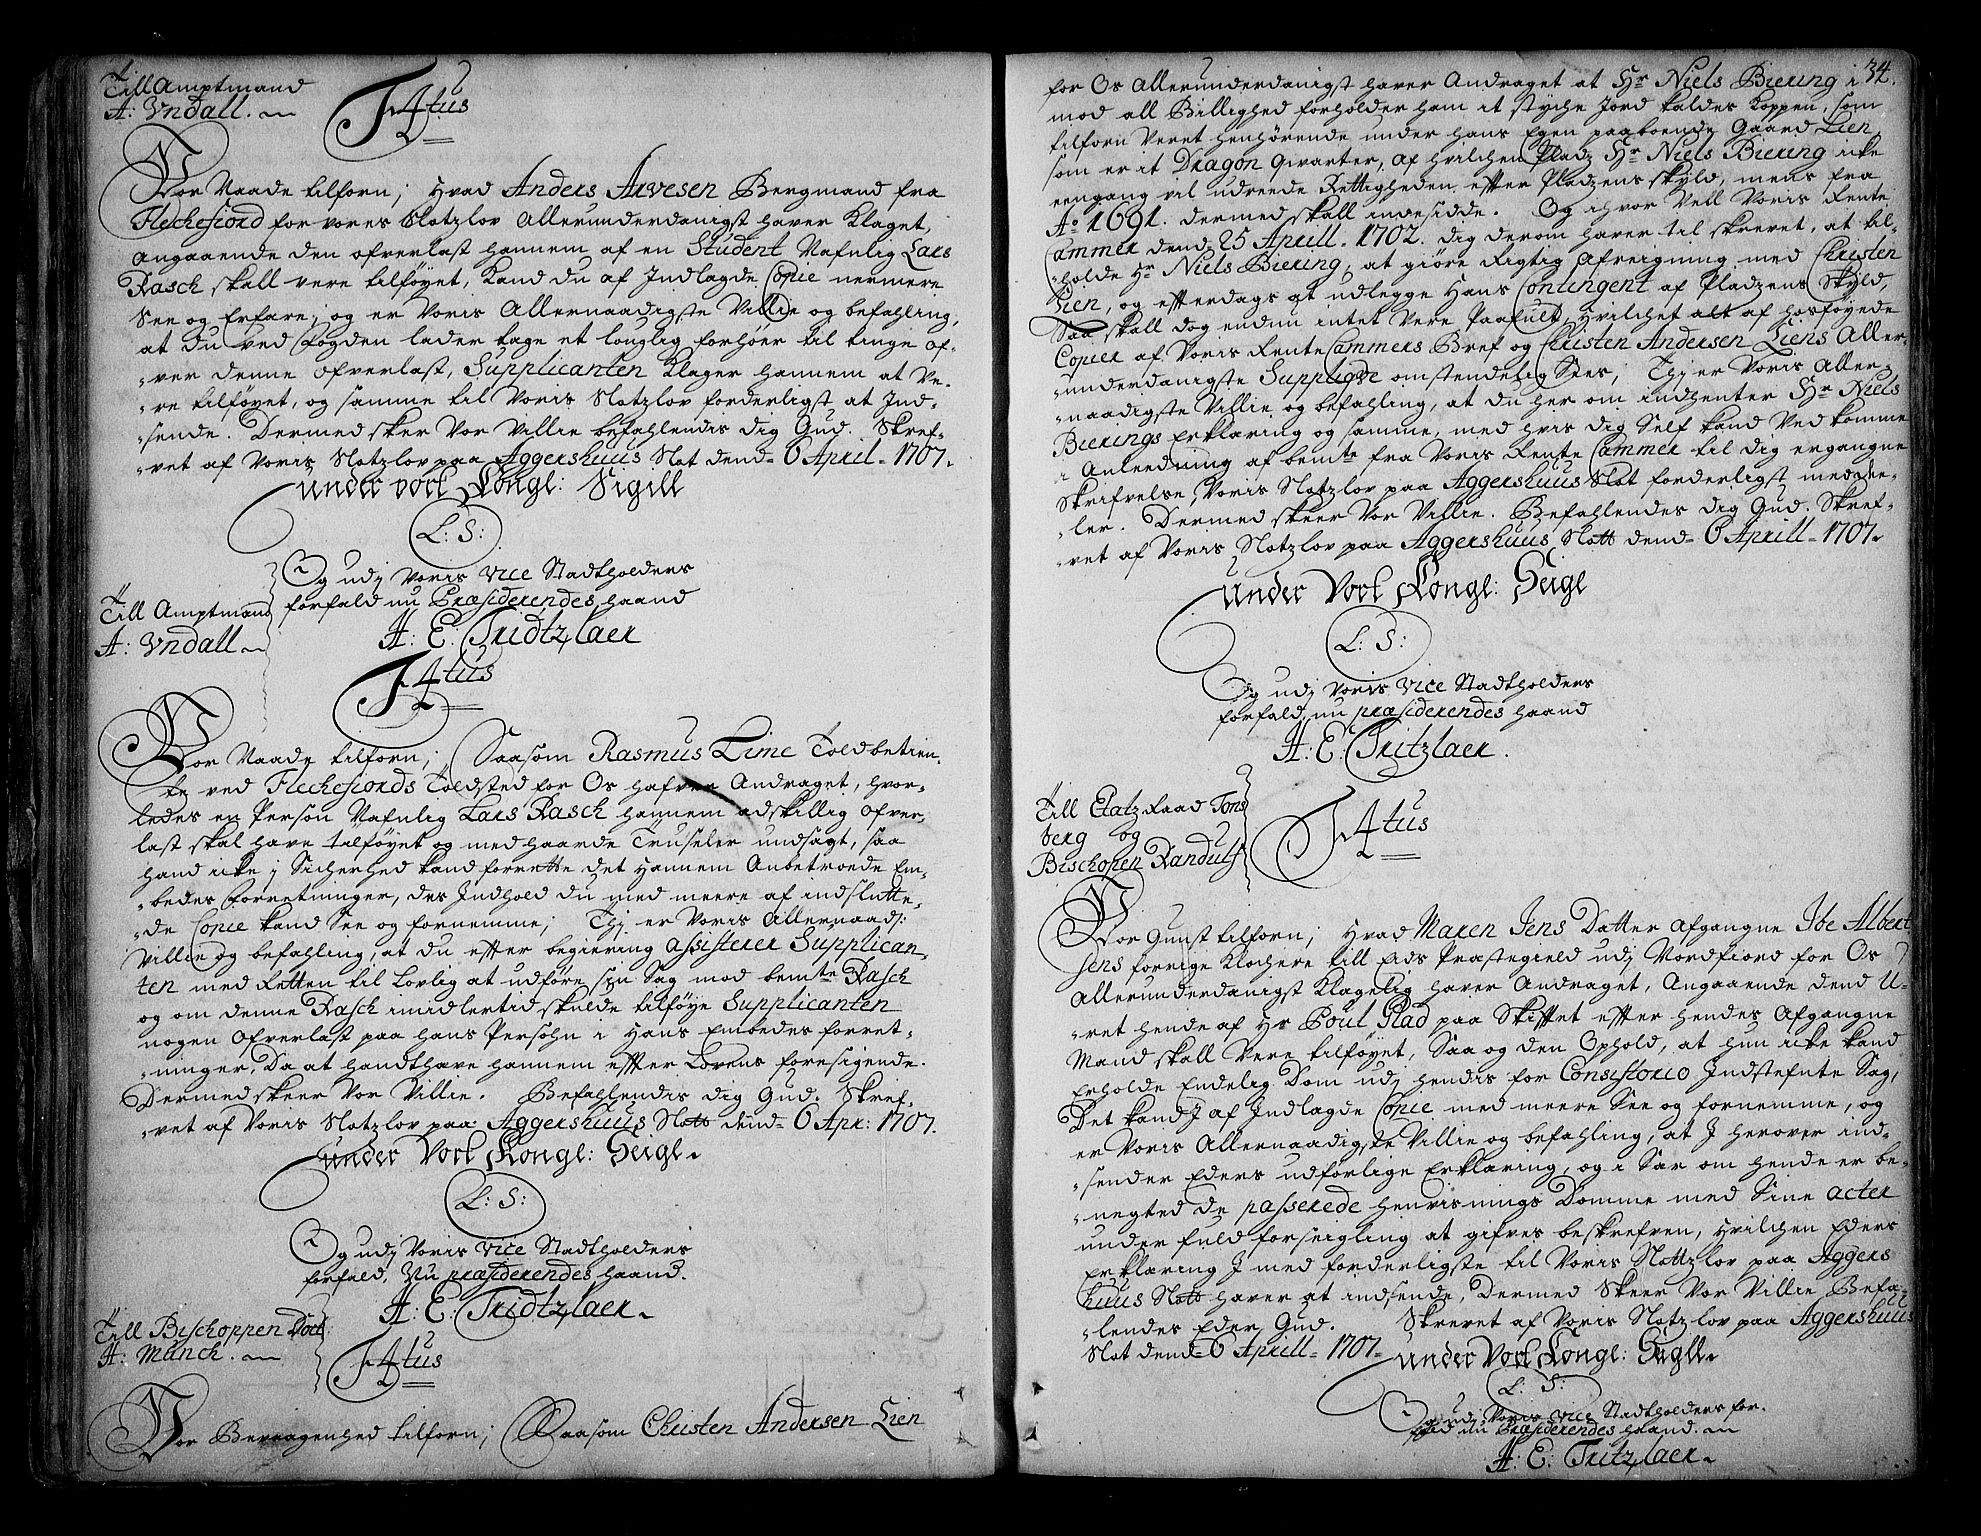 Till Amptmand
A: Undall.
F4tus
Vor Naade tilforn; Hvad Anders Arvesen Bergmand fra
Fleckefiord for vores Slotzlov Allerunderdanigst haver Klaget,
Angaaende den ofverlast hannem af en Student Nafnlig Lars
Rasch skall vere tilføyet, Kand du af Indlagde Copie nermere
See og Erfare; og er Voris Allernaadigste Villie og befahling,
at du ved Fogden lader tage et louglig forhøer til tinge of-
-ver denne ofverlast, Supplicanten Klager hannem at Ve-
-re tilføyet, og samme til Voris Slotzlov forderligst at Ind-
-sende. Dermed sker Vor Villie befahlendis dig Gud. Skref-
-vet af Voris Slotzlov paa Aggershuus Slot dend 6 April 1707.
Under vort Kongl: Sigill
L: S:
Og udj Voris Vice Stadtholders
forfald nu Præsiderendes haand
H: E: Tridtzlaer
Till Amptmand
A: Undall
F4tus
Vor Naade tilforn; Saasom Rasmus Lime Toldbetien-
te ved Fleckefiords Toldsted for Os hafver Andraget, hvor-
ledes en Person Nafnlig Lars Rasch hannem adskillig ofver-
last skal have tilføyet og med haarde Truseler undsagt, saa
hand icke j Sicherhed kand forrette det Hannem Anbetroede Em-
-bedes Forretninger, des Indhold du med meere af indslutte-
-de Copie kand See og fornemme; Thj er Voris Allernaads:
Villie og befahling, at du efter begiering assisterer Supplican-
ten med Retten til Lovlig at udføre sin Sag mod bemte Rasch
og om denne Rasch imidlertid skulde tilføye Supplicanten
nogen Ofverlast paa hans Persohn i Hans Embedes forret-
-ninger, Da at handthave hannem efter Lovens foresigende.
Dermed skeer Vor Villie. Befahlendis dig Gud. Skref-
-vet af Voris Slotzlov paa Aggershuus Slott dend 6 Apr: 1707.
Under Vort Kongl: Seigl
L: S:
Og udj Voris Vice Stadtholders
forfald, Nu præsiderendes haand.
H: E: Tridtzlaer
Till Bischoppen Doct:
H: Munch.
F4tus
Vor Bevaagenhed tilforn; Saasom Christen Andersen Lien
34.
for Os Allerunderdanigst haver Andraget at Hr Niels Biering i-
mod all Billighed forholder ham it styche Jord kaldes Koppen, som
tilforn Veret henhørende under hans Egen paaboende Gaard Lien,
som er it Dragon Qvarter, af hvilchen Pladz Hr Niels Biering icke
eengang vil udreede Rettigheden, efter Pladzens skyld, mens fra
Ao 1691. dermed skall indesidde. Og ihvor Vell Voris Rente
Cammer dend 25 Aprill 1702. dig derom haver til skrevet, at til-
-holde Hr Niels Biering, at giøre Rigtig Afreigning med Christen
Lien, og efterdags at udlegge Hans Contingent af Pladzens Skyld,
Saa skall dog endnu intet Vere Paafult, Hvilchet alt af hosføyede
Copier af Voris Rente Cammers Bref og Christen Andersen Liens Aller-
-underdanigste Supplique omstendelig Sees; Thj er Voris Aller-
-naadigste Villie og befahling, at du her om indhenter Hr Niels
Bierings Erklæring og samme, med hvis dig Self kand Ved komme
i Anleedning af bemte fra Voris Rente Cammer til dig ergangne
Skrifvelse, Voris Slotzlov paa Aggershuus Slot forderligst meddee-
-ler. Dermed skeer Vor Villie. Befahlendes dig Gud. Skref-
-vet af Voris Slotzlov paa Aggershuus Slott dend 6 Aprill 1707
Under Vort Kongl: Seigl
L: S:
Og udj Voris Vice Stadtholders
forfald, nu præsiderendes haand
H: E: Tritzlaer.
Till Etatz Raad Tons
berg og
Bischopen Randulf
F4tus
Vor Gunst tilforn; Hvad Maren Jens Datter Afgangne Ibe Albert
sens forrige Klochere till Eids Præstegield udj Nordfiord for Os
Allerunderdanigst Klagelig haver Andraget, Angaaende dend U-
-ret hende af Hr Poul Glad paa Skiftet efter hendes Afgangne
Mand skall Vere tilføyet, Saa og den Ophold, at hun icke kand
Erholde Endelig Dom udj hendis for Consistorio Indstefnte Sag,
Det kand J af Indlagde Copie med meere See og fornemme, og
er Voris Allernaadigste Villie og befahling, at J herover ind-
-sender Eders udførlige Erklæring, og i Sær om hende er be-
-negted de passerede henvisnings Domme med Sine acter
under fuld forseigling at gifves beskrefven, Hvilchen Eders
Erklæring J med forderligste til Voris Slottzlov paa Aggers
huus Slott haver at indsende, Dermed Skeer Vor Villie Befa-
-lendes Eder Gud. Skrevet af Voris Slotzlov paa Aggershuus
Slot dend 6 Aprill 1707
Under Vort Kongl: Seigll
L: S:
Og udj Voris Vice Stadtholders for-
fald nu Præsiderendes haand.
H: E: Tritzlaer